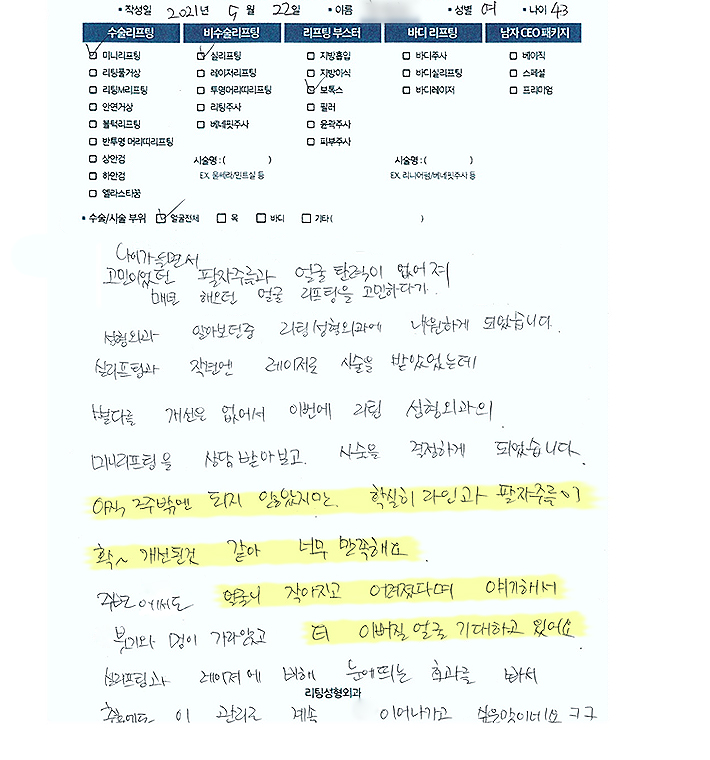 • 작성일 2021년 5월 22일 • 이름 • 성별 여 • 나이 43
수술리프팅 비수술리프팅 리프팅 부스터 바디 리프팅 남자 CEO 패키지
미니리프팅 실리프팅 지방흡입 바디주사 베이직
리팅풀거상 레이저리프팅 지방이식 바디실리프팅 스페셜
리팅M리프팅 투명머리띠리프팅 보톡스 바디레이저 프리미엄
안면거상 리팅주사 필러
볼턱리프팅 베네핏주사 윤곽주사
반투명 머리띠리프팅 피부주사
상안검 시술명 : ( ) 시술명 : ( )
하안검 EX. 울쎄라/민트실 등 EX. 리니어펌/베네핏주사 등
엘라스티꿈
• 수술/시술 부위 얼굴전체 목 바디 기타 ( )
나이가 들면서
고민이었던 팔자주름과 얼굴 탄력이 없어져
매번 해오던 얼굴 리프팅을 고민하다가
성형외과 알아보던중 리팅성형외과에 내원하게 되었습니다.
실리프팅과 작년엔 레이저로 시술을 받았었는데
별다를 개선은 없어서 이번에 리팅 성형외과의
미니리프팅을 상담 받아보고. 시술을 결정하게 되었습니다.
아직, 2주밖엔 되지 않았지만. 확실히 라인과 팔자주름이
확~ 개선된것 같아 너무 만족해요
주변에서도 얼굴이 작아지고 어려졌다며 얘기해서
붓기와 멍이 가라앉고 더 이뻐질 얼굴 기대하고 있어요
실리프팅과 레이저에 비해 눈에띄는 효과를 봐서
리팅성형외과
추후에도 이 관리로 계속 이어나가고 싶은맛이네요 ㅋㅋ